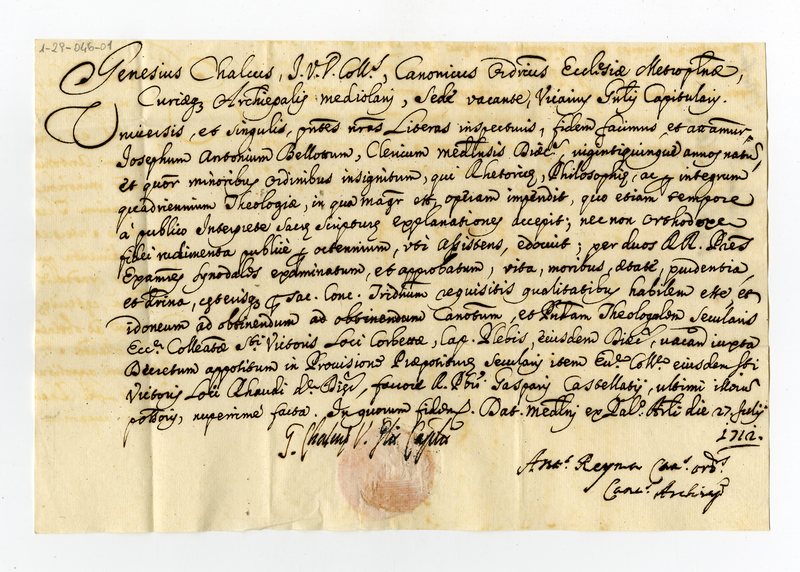 1-29-046-01
Genesius Chalcus, I.V.P. Coll.s, Canonicus Ordrius Ecclesiæ Metroplnæ,
Curiæq; Archiepalis mediolani, Sede vacante, Vicarius Gnlis Capitularis.
Universis, et singulis, pntes nras Literas inspecturis, fidem facimus, et attamur
Josephum Antonium Bellotum, Clericum medlensis Diec.s, vigintiquinque annos natu
et quor minoribus ordinibus insignitum, qui Rhetoricę, Philosophię, ac integrum
quadriennium Theologiæ, in qua magr est, operam impendit, quo etiam tempore
à publico Interprete Sacrę Scripturę explanationes accepit; nec non orthodoxe
fidei rudimenta publicè octennium, uti Assistens, edocuit; per duos RR. PP
Examres synodales examinatum, et approbatum, vita, moribus, ætate, prudentia,
et drina, cęterisq; Sac. Conc. Tridinum requisitis qualitatibus habilem esse et
idoneum ad obtinendum ad obtinendum Canotum, et Theologalem Secularis
Ecc.æ Colleatæ Sti Victoris Loci Corbettæ, Cap. Plebis, eiusdem Diec.s, vacan iuxta
Decretum appositum in Provisione Præpositurę Secularis item Ecc. Coll. eiusdem Sti
Victoris Loci Rhaudi d.æ Diec.s, favore R. Pbri Gasparis Castellatij, ultimi
possoris, nuperrime facta. In quorum fidem. Dat. medlni ex Pal.o Arli die 27 Julij
1712.
G. Chalcus V. Glis Caplis
Ant.s Reyna Can.s ord.s
Canc.s Archiep.